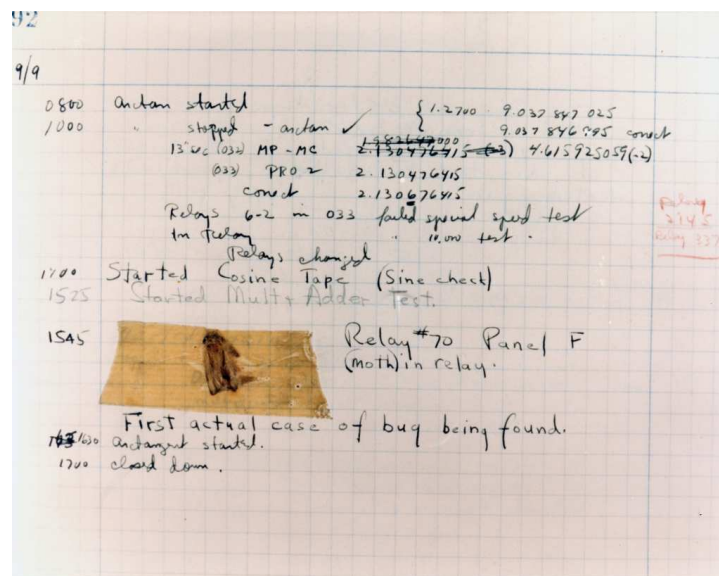 92
9/9
0800 Antan started { 1.2700 9.037 847 025
1000 " stopped - antan ✓ 9.037 846 995 conect
13"uc (032) MP - MC 2.130476415 (-3) 4.615925059(-2)
(033) PRO 2 2.130476415
conect 2.130676415
Relays 6-2 in 033 failed special speed test
In Relay " 10.000 test .
Relays changed
Relay
2145
Relay 337
1100 Started Cosine Tape (Sine check)
1525 Started Mult + Adder Test.
1545 Relay #70 Panel F
(moth) in relay.
First actual case of bug being found.
1630 Antangent started.
1700 closed down.